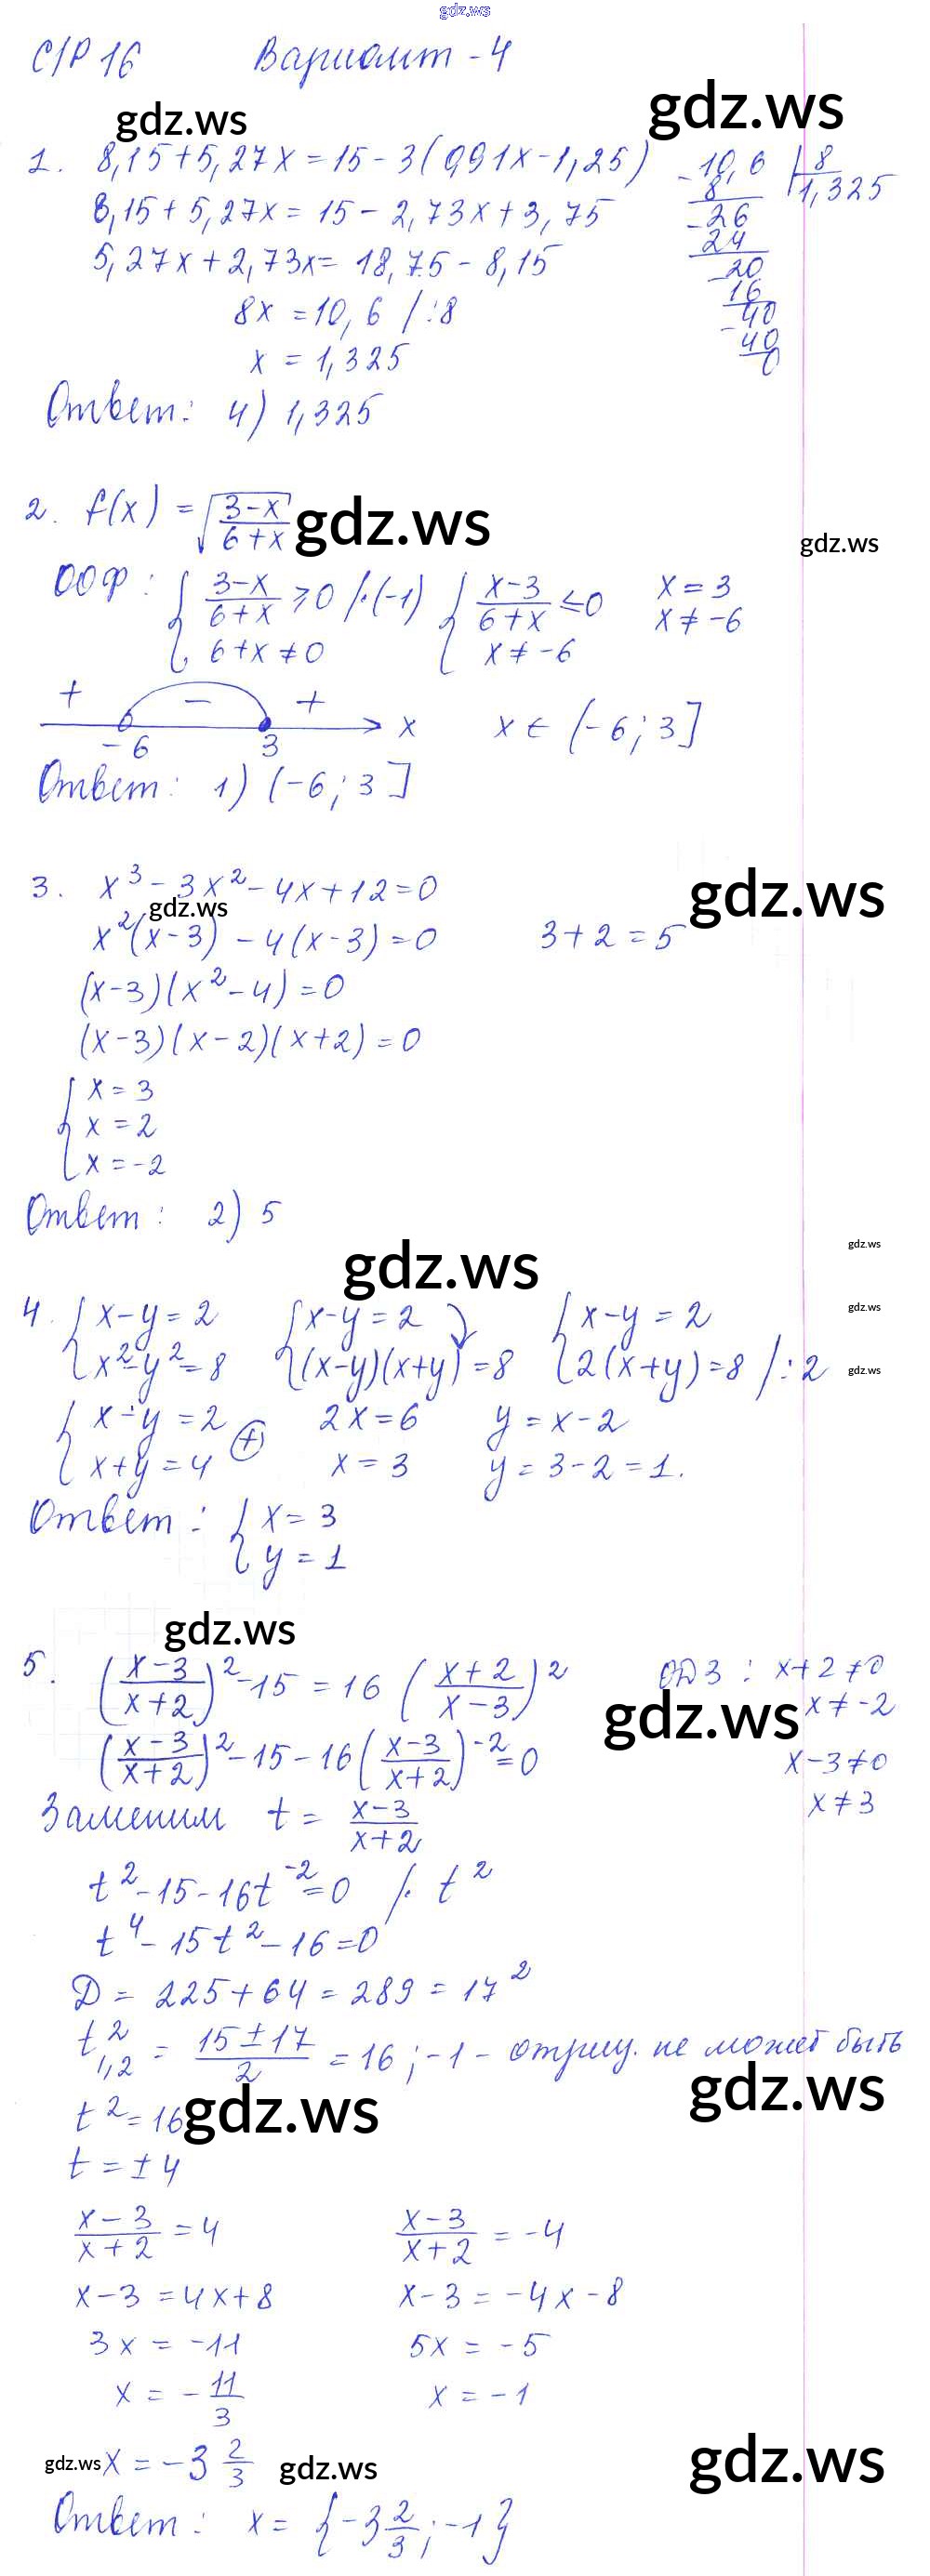 gdz.ws
С/Р 16 Вариант - 4
gdz.ws gdz.ws
1. 8,15+5,27x=15-3(0,91x-1,25)
8,15+5,27x=15-2,73x+3,75
5,27x+2,73x=18,75-8,15
8x=10,6 /:8
x=1,325
-10,6 | 8
8 1,325
-26
24
-20
16
-40
40
0
Ответ: 4) 1,325
2. f(x)=√((3-x)/(6+x)) gdz.ws
gdz.ws
ООФ: { (3-x)/(6+x)≥0 /·(-1) { (x-3)/(6+x)≤0 x=3
6+x≠0 x≠-6 x≠-6
+ - +
-6 3 x x∈(-6;3]
Ответ: 1) (-6;3]
gdz.ws
3. x³-3x²-4x+12=0
gdz.ws
x²(x-3)-4(x-3)=0 3+2=5
(x-3)(x²-4)=0
(x-3)(x-2)(x+2)=0
{ x=3
x=2
x=-2
Ответ: 2) 5
gdz.ws gdz.ws
4. { x-y=2 { x-y=2 { x-y=2
gdz.ws
x²-y²=8 (x-y)(x+y)=8 2(x+y)=8 /:2
gdz.ws
{ x-y=2 ⊕ 2x=6 y=x-2
x+y=4 x=3 y=3-2=1.
Ответ: { x=3
y=1
gdz.ws
5. ((x-3)/(x+2))²-15=16((x+2)/(x-3))² ОДЗ: x+2≠0
gdz.ws x≠-2
((x-3)/(x+2))²-15-16((x-3)/(x+2))⁻²=0 x-3≠0
x≠3
Заменим t=(x-3)/(x+2)
t²-15-16t⁻²=0 /· t²
t⁴-15t²-16=0
D=225+64=289=17²
t²₁,₂=(15±17)/2=16;-1 - отриц. не может быть
gdz.ws
t²=16 gdz.ws
t=±4
(x-3)/(x+2)=4 (x-3)/(x+2)=-4
x-3=4x+8 x-3=-4x-8
3x=-11 5x=-5
x=-11/3 x=-1
gdz.ws x=-3 2/3 gdz.ws gdz.ws
Ответ: x={-3 2/3;-1}